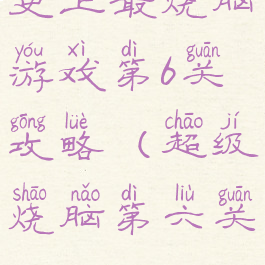 史上最烧脑
yóu xì dì guān
游戏第6关
gōng lüè chāo jí
攻略（超级
shāo nǎo dì liù guān
烧脑第六关